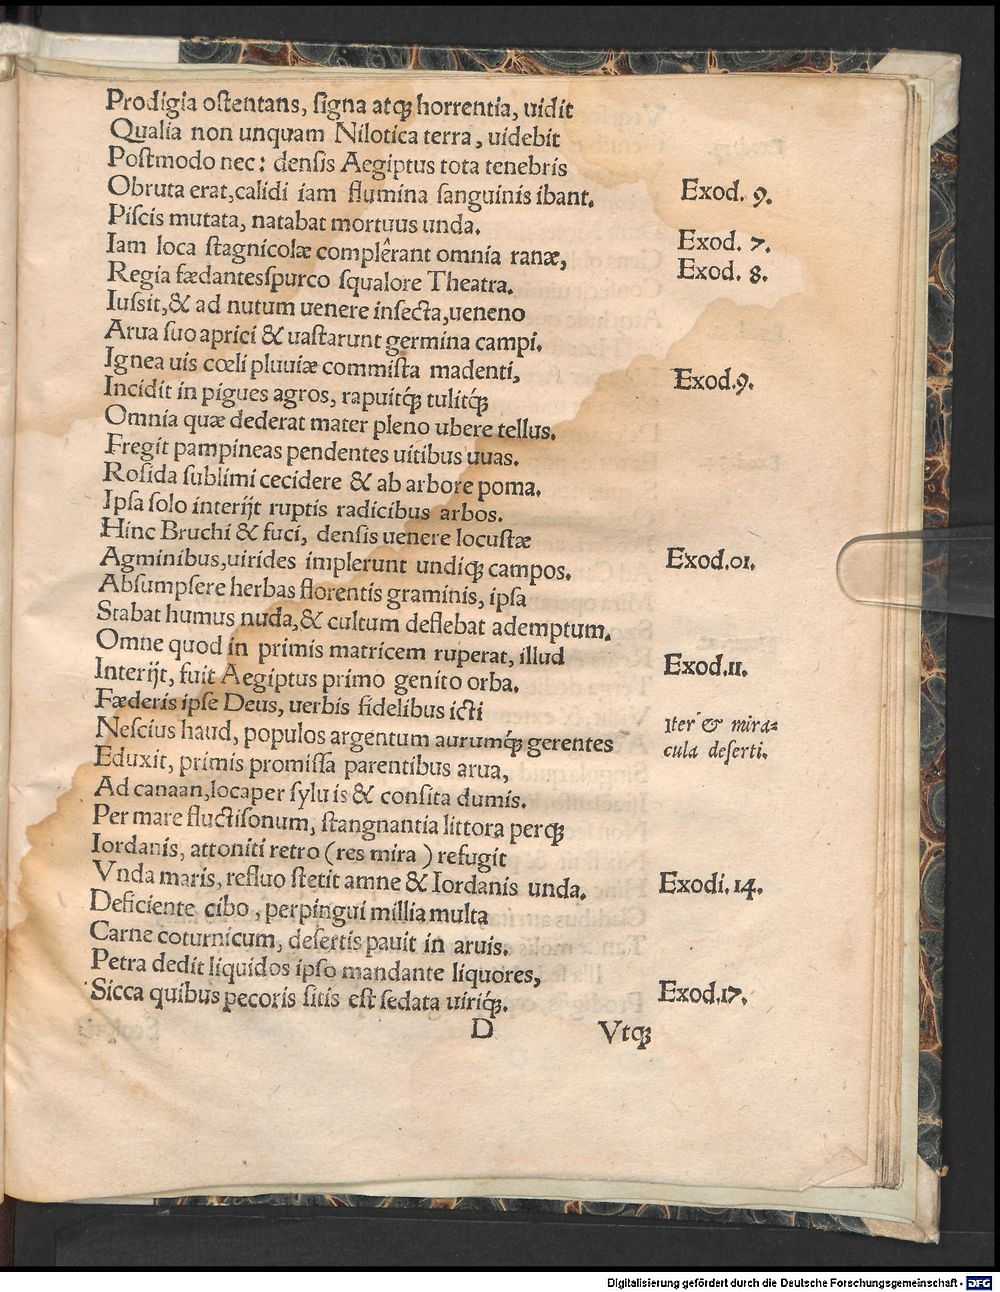 Prodigia oſtentans, ſigna atqꝫ horrentia, uidit
Qualia non unquam Nilotica terra, uidebit
Poſtmodo nec: denſis Aegiptus tota tenebris
Obruta erat,calidi iam flumina ſanguinis ibant. Exod. 9.
Piſcis mutata, natabat mortuus unda.
Iam loca ſtagnicolæ complêrant omnia ranæ, Exod. 7.
Regia fædantesſpurco ſqualore Theatra. Exod. 8.
Iuſsit,& ad nutum uenere inſecta,ueneno
Arua ſuo aprici & uaſtarunt germina campi.
Ignea uis cœli pluuiæ commiſta madenti, Exod.9.
Incidit in pigues agros, rapuitq́ꝫ tulitq́ꝫ
Omnia quæ dederat mater pleno ubere tellus.
Fregit pampineas pendentes uitibus uuas.
Roſida ſublimi cecidere & ab arbore poma.
Ipſa ſolo interijt ruptis radicibus arbos.
Hinc Bruchi & fuci, denſis uenere locuſtæ
Agminibus,uirides implerunt undiqꝫ campos. Exod.01.
Abſumpſere herbas florentis graminis, ipſa
Stabat humus nuda,& cultum deflebat ademptum.
Omne quod in primis matricem ruperat, illud
Interijt, fuit Aegiptus primo genito orba. Exod.11.
Fæderis ipſe Deus, uerbis fidelibus icti
Neſcius haud, populos argentum aurumq́ꝫ gerentes Iter & mira⸗
Eduxit, primis promiſſa parentibus arua, cula deſerti.
Ad canaan,locaper ſylu is & conſita dumis.
Per mare fluctiſonum, ſtangnantia littora perqꝫ
Iordanis, attoniti retro (res mira ) refugit
Vnda maris, refluo ſtetit amne & Iordanis unda. Exodi. 14.
Deficiente cibo, perpingui millia multa
Carne coturnicum, deſertis pauit in aruis.
Petra dedit liquidos ipſo mandante liquores,
Sicca quibus pecoris ſitis eſt ſedata uiriq́ꝫ. Exod.17.
D Vtqꝫ
Digitalisierung gefördert durch die Deutsche Forschungsgemeinschaft - DFG